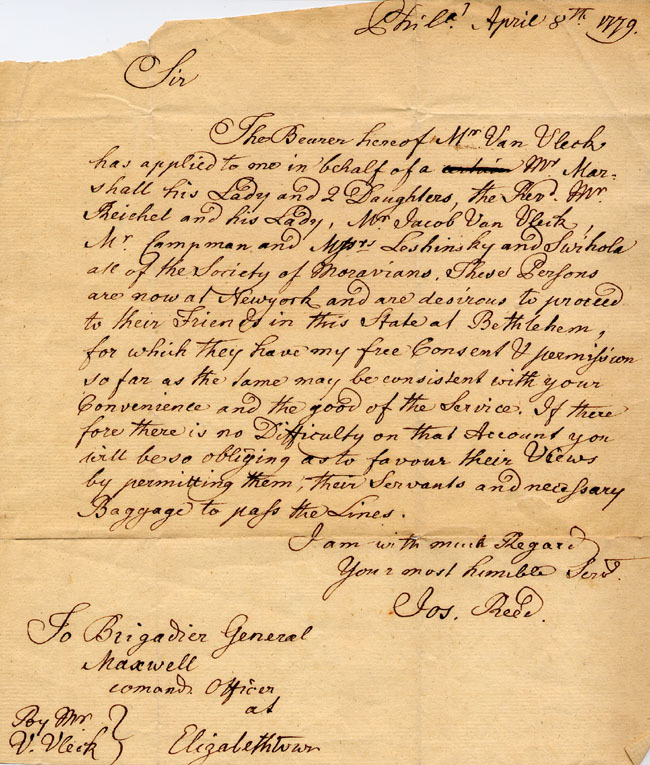 Phila. April 8th. 1779.
Sir
The Bearer hereof Mr Van Vleck
has applied to me in behalf of a certain Mr. Mar-
shall his Lady and 2 Daughters, the Revd. Mr.
Reichel and his Lady, Mr. Jacob Van Vleck,
Mr. Campman and Messrs Loshinsky and Swihola
all of the Society of Moravians. These Persons
are now at Newyork and are desirous to proceed
to their Friends in this State at Bethlehem,
for which they have my free Consent & permission
so far as the same may be consistent with your
Convenience and the good of the Service. If there
fore there is no Difficulty on that Account you
will be so obliging as to favour their Views
by permitting them, their Servants and necessary
Baggage to pass the Lines.
I am with much Regard
Your most humble Servt.
Jos. Reed.
To Brigadier General
Maxwell
comandg Officer
at
Elizabethtown
By Mr.
V. Vleck